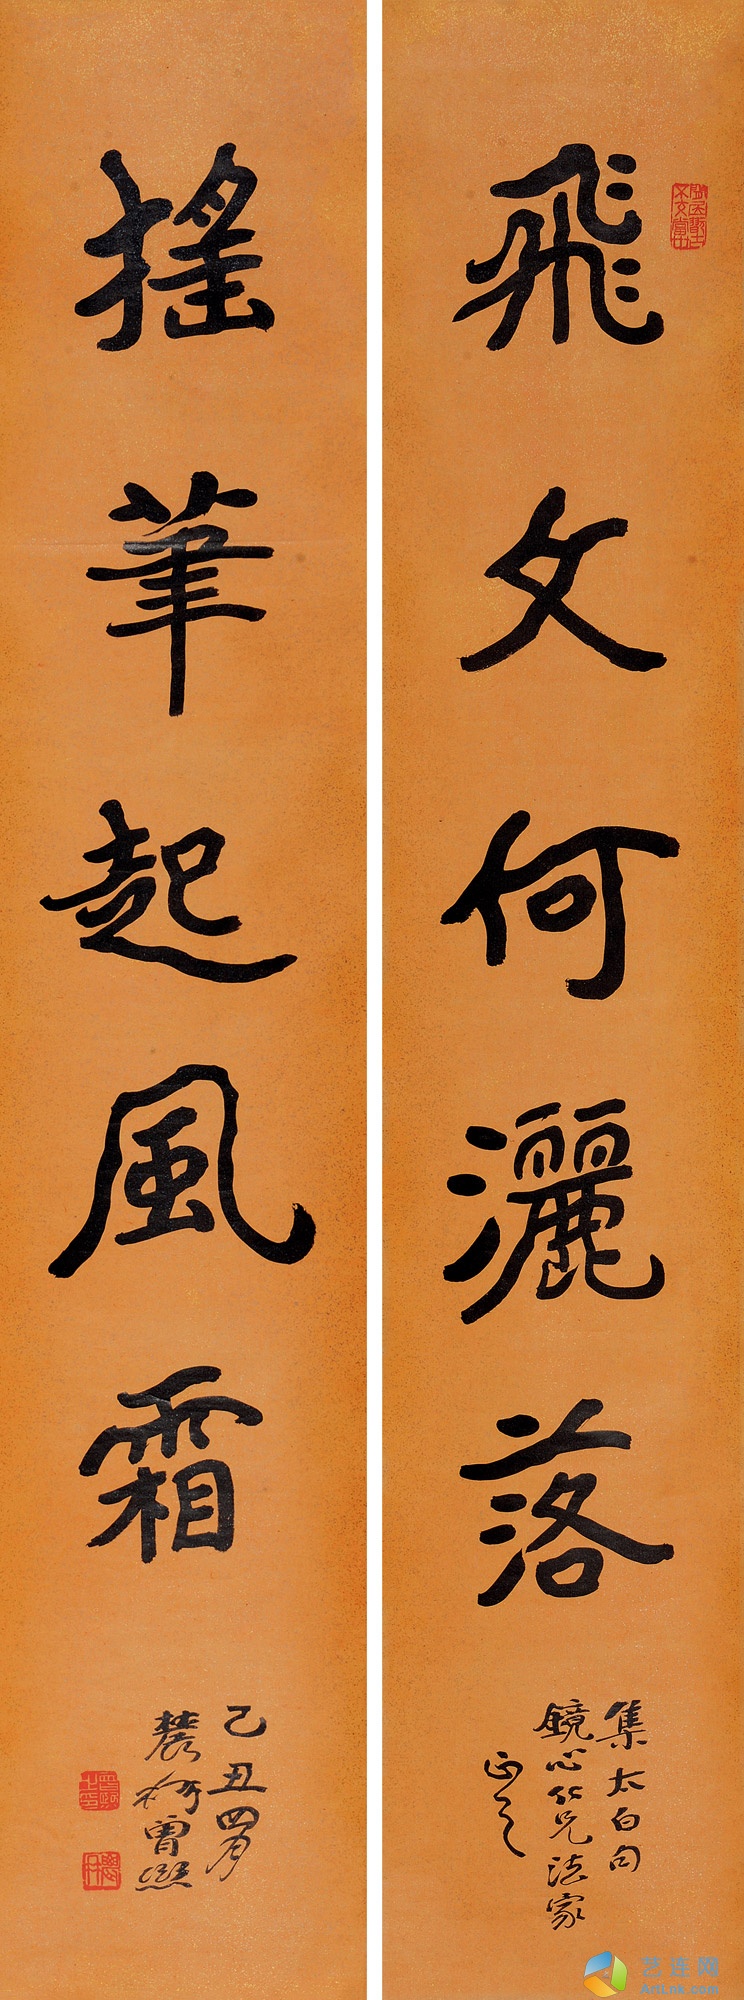 飛文何灑落
集太白句
鏡心仁兄法家
正之
搖筆起風霜
乙丑四月
農髯曾熙
艺连网
ArtLnk.com